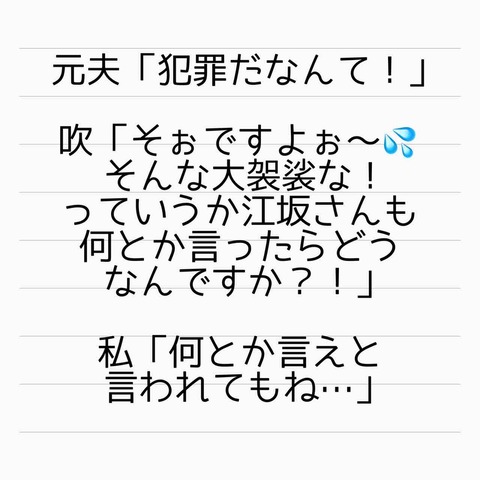 元夫「犯罪だなんて！」
吹「そぉですよぉ〜💦
そんな大袈裟な！
っていうか江坂さんも
何とか言ったらどう
なんですか？！」
私「何とか言えと
言われてもね…」